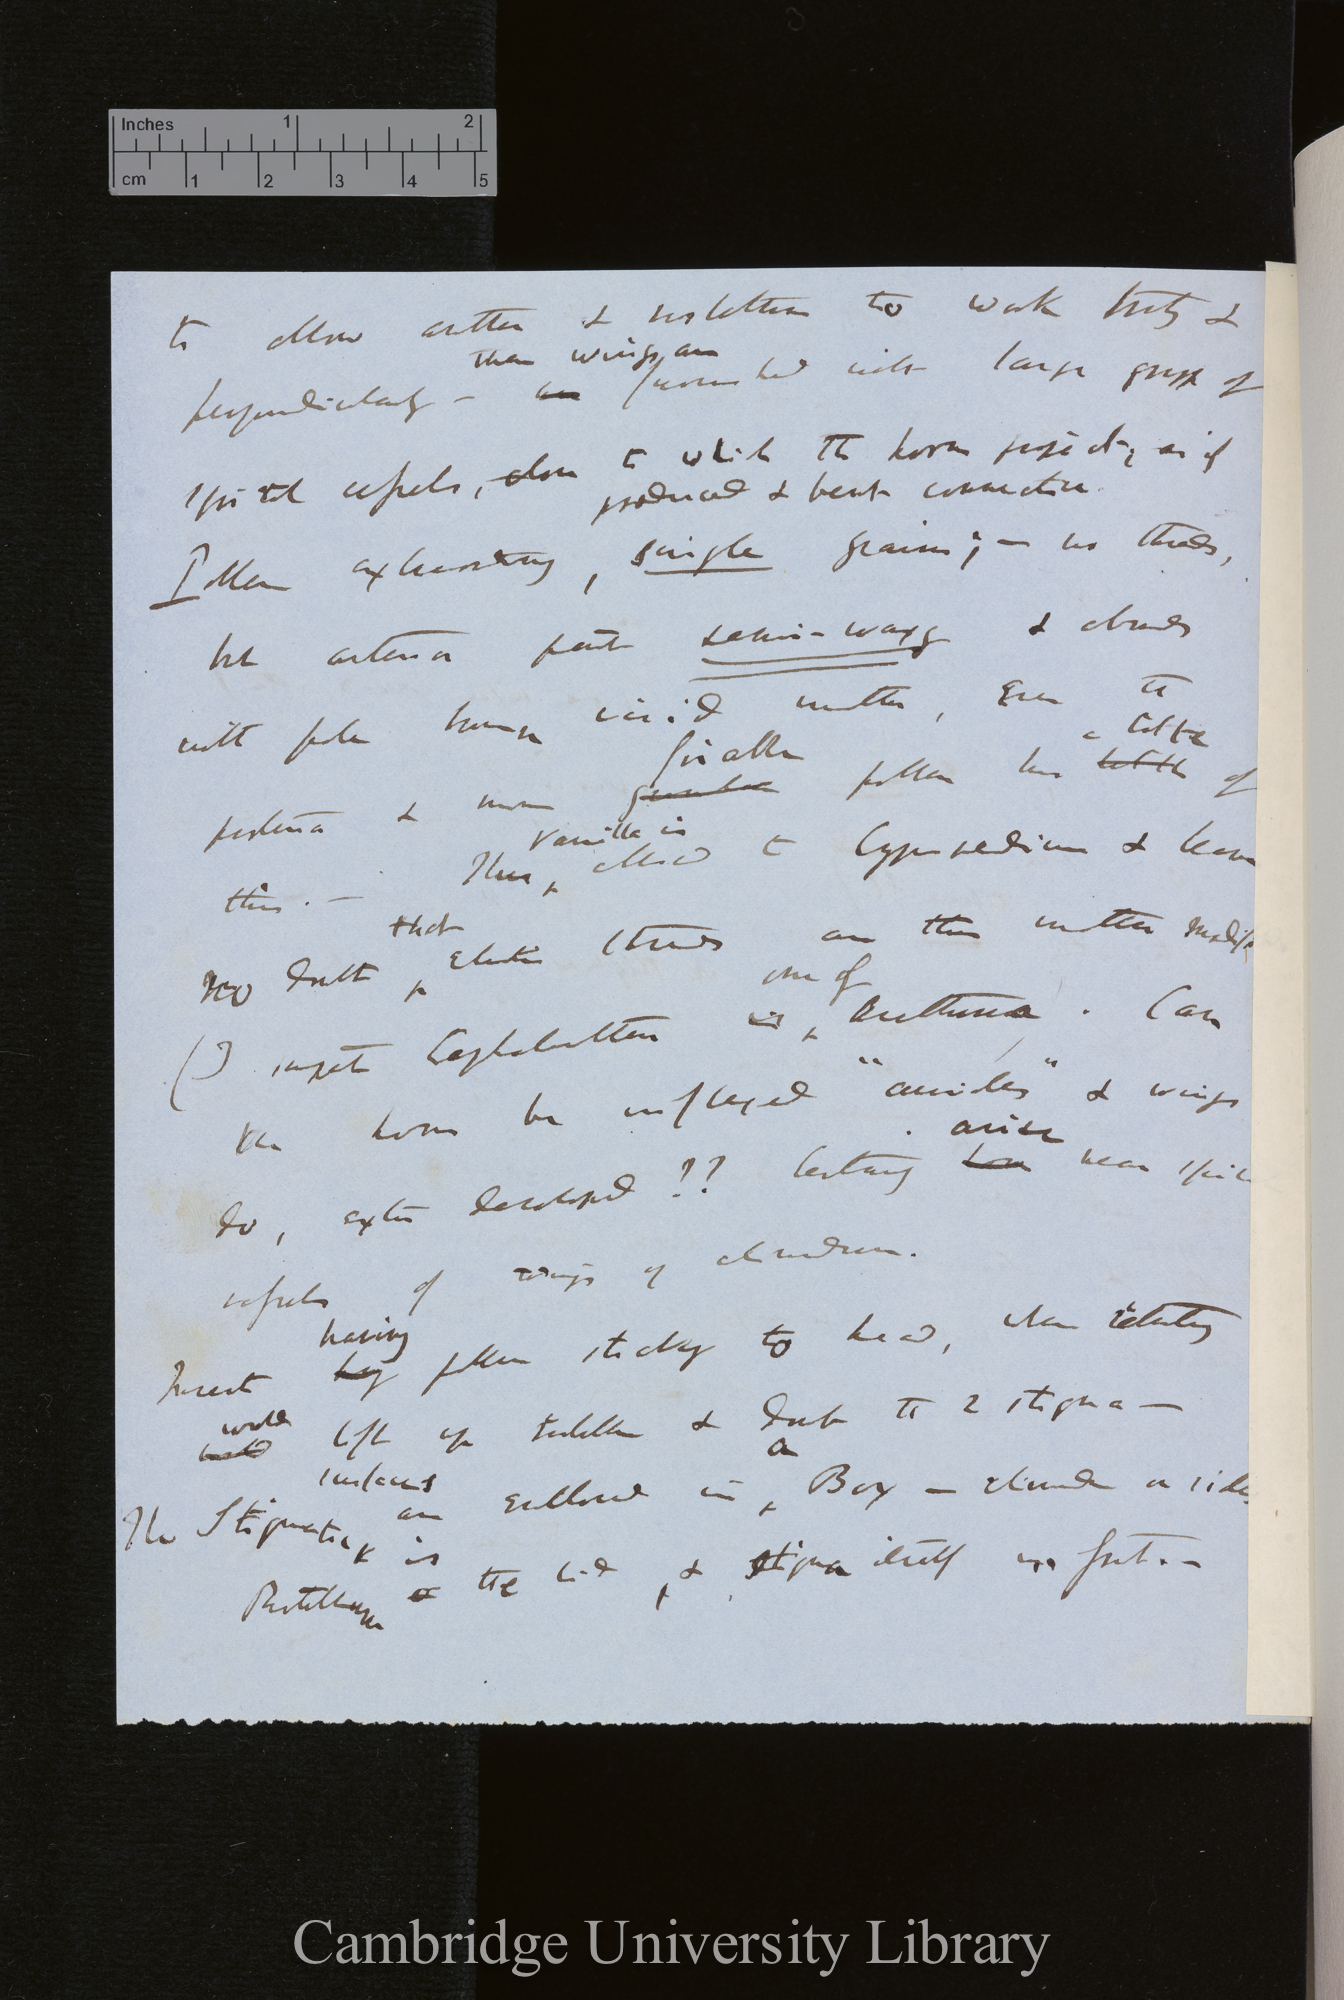 Inches 1 2
cm 1 2 3 4 5
to allow anther & rostellum to work freely &
these wings, are
perpendicularly — are furnished with large group of
spiral vessels, close to which the horns project, as if
produced & bent connective.
Pollen extraordinary, single grains; — no threads,
but anterior part semi-waxy & abounds
with pale brown viscid matter, even the
a little
finally
posterior & more pollen has little of
Vanilla is
this. — Thus, allied to Cypripedium & Leaves
that
no doubt elastic threads are this matter modified
one of
(I suspect Cephalanthera is Arethusa. Can
the horns be "auricles" & wings
arise
do, extra developed?? Certainly near spiral
vessels of wings of clinandrum.
having
Insect pollen sticky to head, when retreating
would
lift up rostellum & dust the 2 stigma —
a
surfaces
The Stigmatic are enclosed in Box — clinandrum on sides
is
Rostellum the lid, & stigma itself in front. —
Cambridge University Library